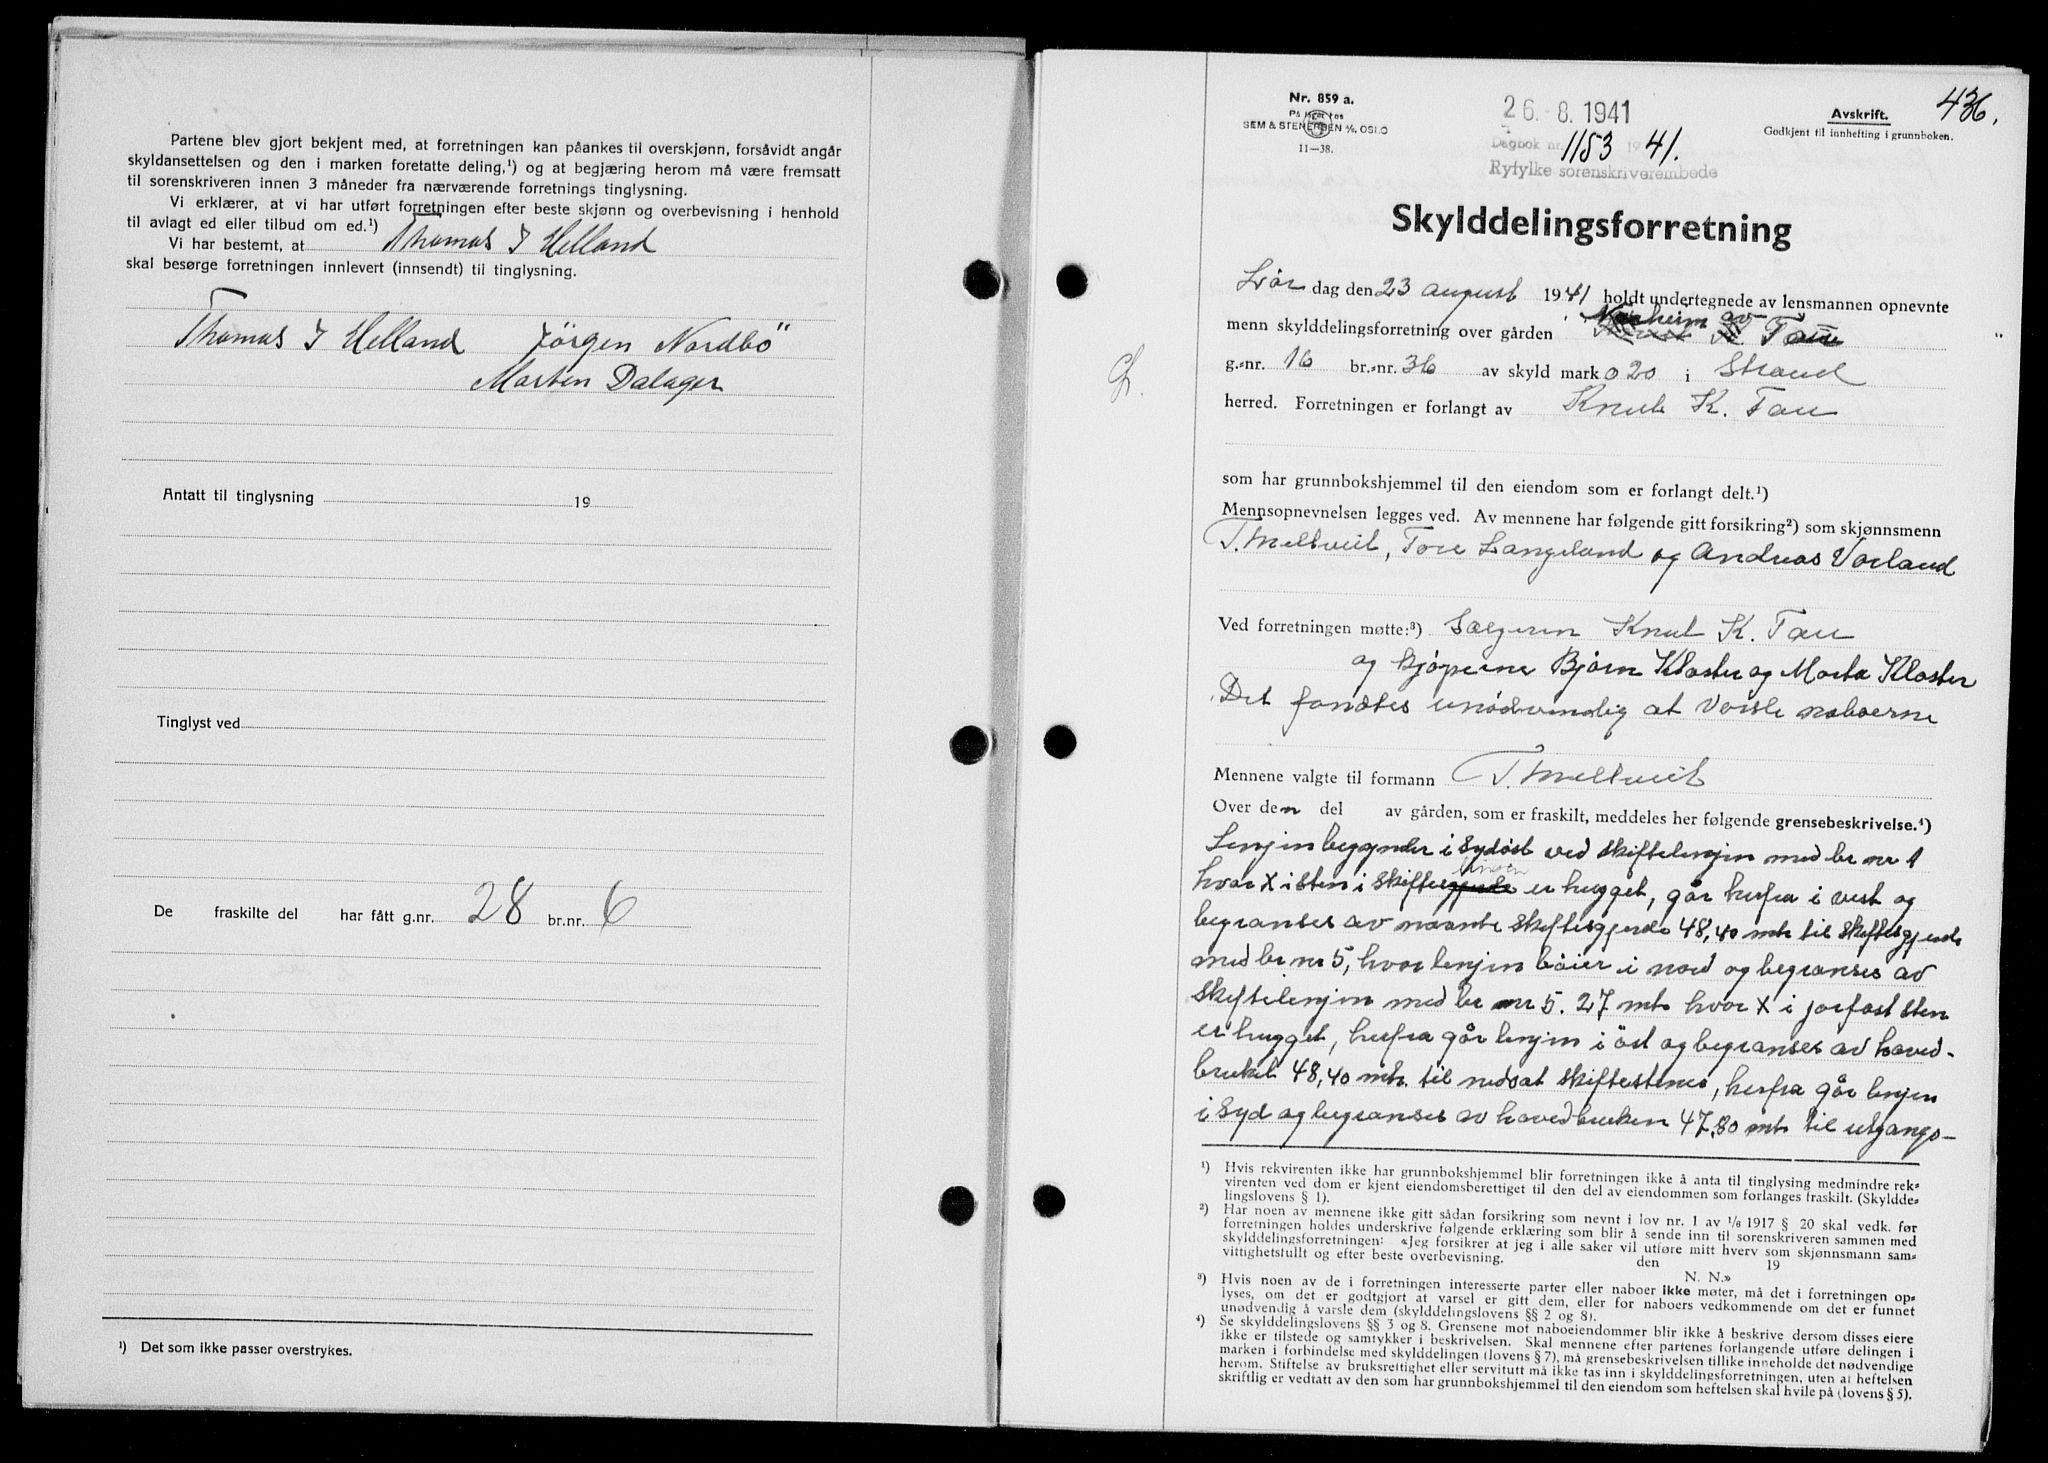 Partene blev gjort bekjent med, at forretningen kan påankes til overskjønn, forsåvidt angår
skyldansettelsen og den i marken foretatte deling,¹) og at begjæring herom må være fremsatt
til sorenskriveren innen 3 måneder fra nærværende forretnings tinglysning.
Vi erklærer, at vi har utført forretningen efter beste skjønn og overbevisning i henhold
til avlagt ed eller tilbud om ed.¹)
Vi har bestemt, at Thomas I Helland
skal besørge forretningen innlevert (innsendt) til tinglysning.
Thomas I Helland Jörgen Nordbö
Morten Dalager
Antatt til tinglysning 19
Tinglyst ved
De fraskilte del har fått g.nr. 28 br.nr. 6
¹) Det som ikke passer overstrykes.
436.
Nr. 859 a.
På lager hos
SEM & STENERSEN A/S, OSLO
11—38.
26.-8. 1941
Dagbok nr. 1153 19 41.
Ryfylke sorenskriverembede
Avskrift.
Godkjent til innhefting i grunnboken.
Skylddelingsforretning
Lör dag den 23 august 1941 holdt undertegnede av lensmannen opnevnte
menn skylddelingsforretning over gården Norheim av Tau
g.-nr. 16 br.-nr. 36 av skyld mark 0 20 i Strand
herred. Forretningen er forlangt av Knut K. Tau
som har grunnbokshjemmel til den eiendom som er forlangt delt.¹)
Mennsopnevnelsen legges ved. Av mennene har følgende gitt forsikring²) som skjønnsmenn
T. Meltveit, Tore Langeland og Andreas Vorland
Ved forretningen møtte:³) Sælgeren Knut K. Tau
og kjöperne Björn Kloster og Marta Kloster
Det fandtes unödvendig at varsle naboerne
Mennene valgte til formann T. Meltveit
Over den del av gården, som er fraskilt, meddeles her følgende grensebeskrivelse.⁴)
Lenjin begynder i sydöst ved skiftelenjin med br nr 1
hvor X i sten i skifte er hugget, går herfra i vest og
begranses av nævnte skiftesgjerde 48,40 mtr til skiftesgjerde
med br nr 5, hvor lenjin böier i nord og begranses av
skiftelenjin med br nr 5. 27 mtr hvor X i jorfast sten
er hugget, herfra går lenjin i öst og begranses av hoved-
bruket 48,40 mtr. til nedsat skiftestenes, herfra går lenjen
i syd og begranses av hovedbruken 47,80 mtr til utgangs-
¹) Hvis rekvirenten ikke har grunnbokshjemmel blir forretningen ikke å anta til tinglysing medmindre rek-
virenten ved dom er kjent eiendomsberettiget til den del av eiendommen som forlanges fraskilt. (Skyldde-
lingslovens § 1).
²) Har noen av mennene ikke gitt sådan forsikring som nevnt i lov nr. 1 av 1/6 1917 § 20 skal vedk. før
forretningen holdes underskrive følgende erklæring som blir å sende inn til sorenskriveren sammen med
skylddelingsforretningen: «Jeg forsikrer at jeg i alle saker vil utføre mitt hverv som skjønnsmann sam-
vittighetsfullt og efter beste overbevisning. den 19
N. N.»
³) Hvis noen av de i forretningen interesserte parter eller naboer ikke møter, må det i forretningen op-
lyses, om det er godtgjort at varsel er gitt dem, eller for naboers vedkommende om det er funnet
unødvendig å varsle dem (skylddelingslovens §§ 2 og 8).
⁴) Se skylddelingslovens §§ 3 og 8. Grensene mot naboeiendommer blir ikke å beskrive dersom disses eiere
ikke er tilstede og samtykker i beskrivelsen. Skal mennene efter partenes forlangende utføre delingen i
marken i forbindelse med skylddelingen (lovens § 7), må grensebeskrivelsen tillike inneholde det nødvendige
herom. Stiftelse av bruksrettighet eller servitutt må ikke tas inn i skylddelingsforretningen, uten at heftelsen
skriftlig er vedtatt av den som har grunnbokshjemmel til den eiendom som heftelsen skal hvile på (lovens § 5).